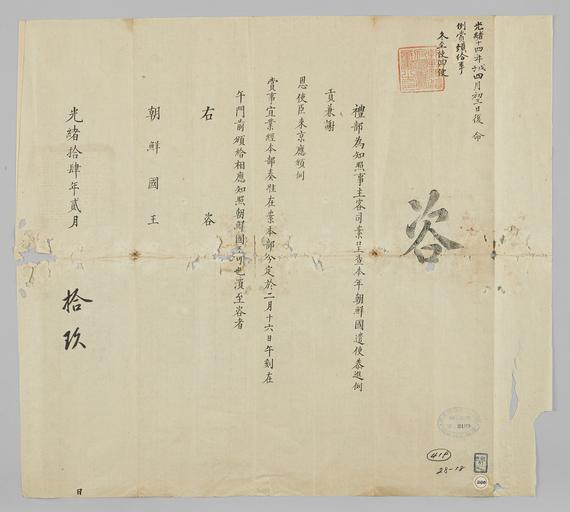 光緒十四年戊子四月初三日後 命
例賞頒給事
咨
禮部為知照事主客司案呈查本年朝鮮國遣使恭進例
貢兼謝
恩使臣来京應頒例
賞事宜業經本部奏准在案本部今定於二月十六日午刻在
午門前頒給相應知照朝鮮國王可也須至咨者
右 咨
朝鮮國王
光緒拾肆年貳月
拾玖
日
418
28-18